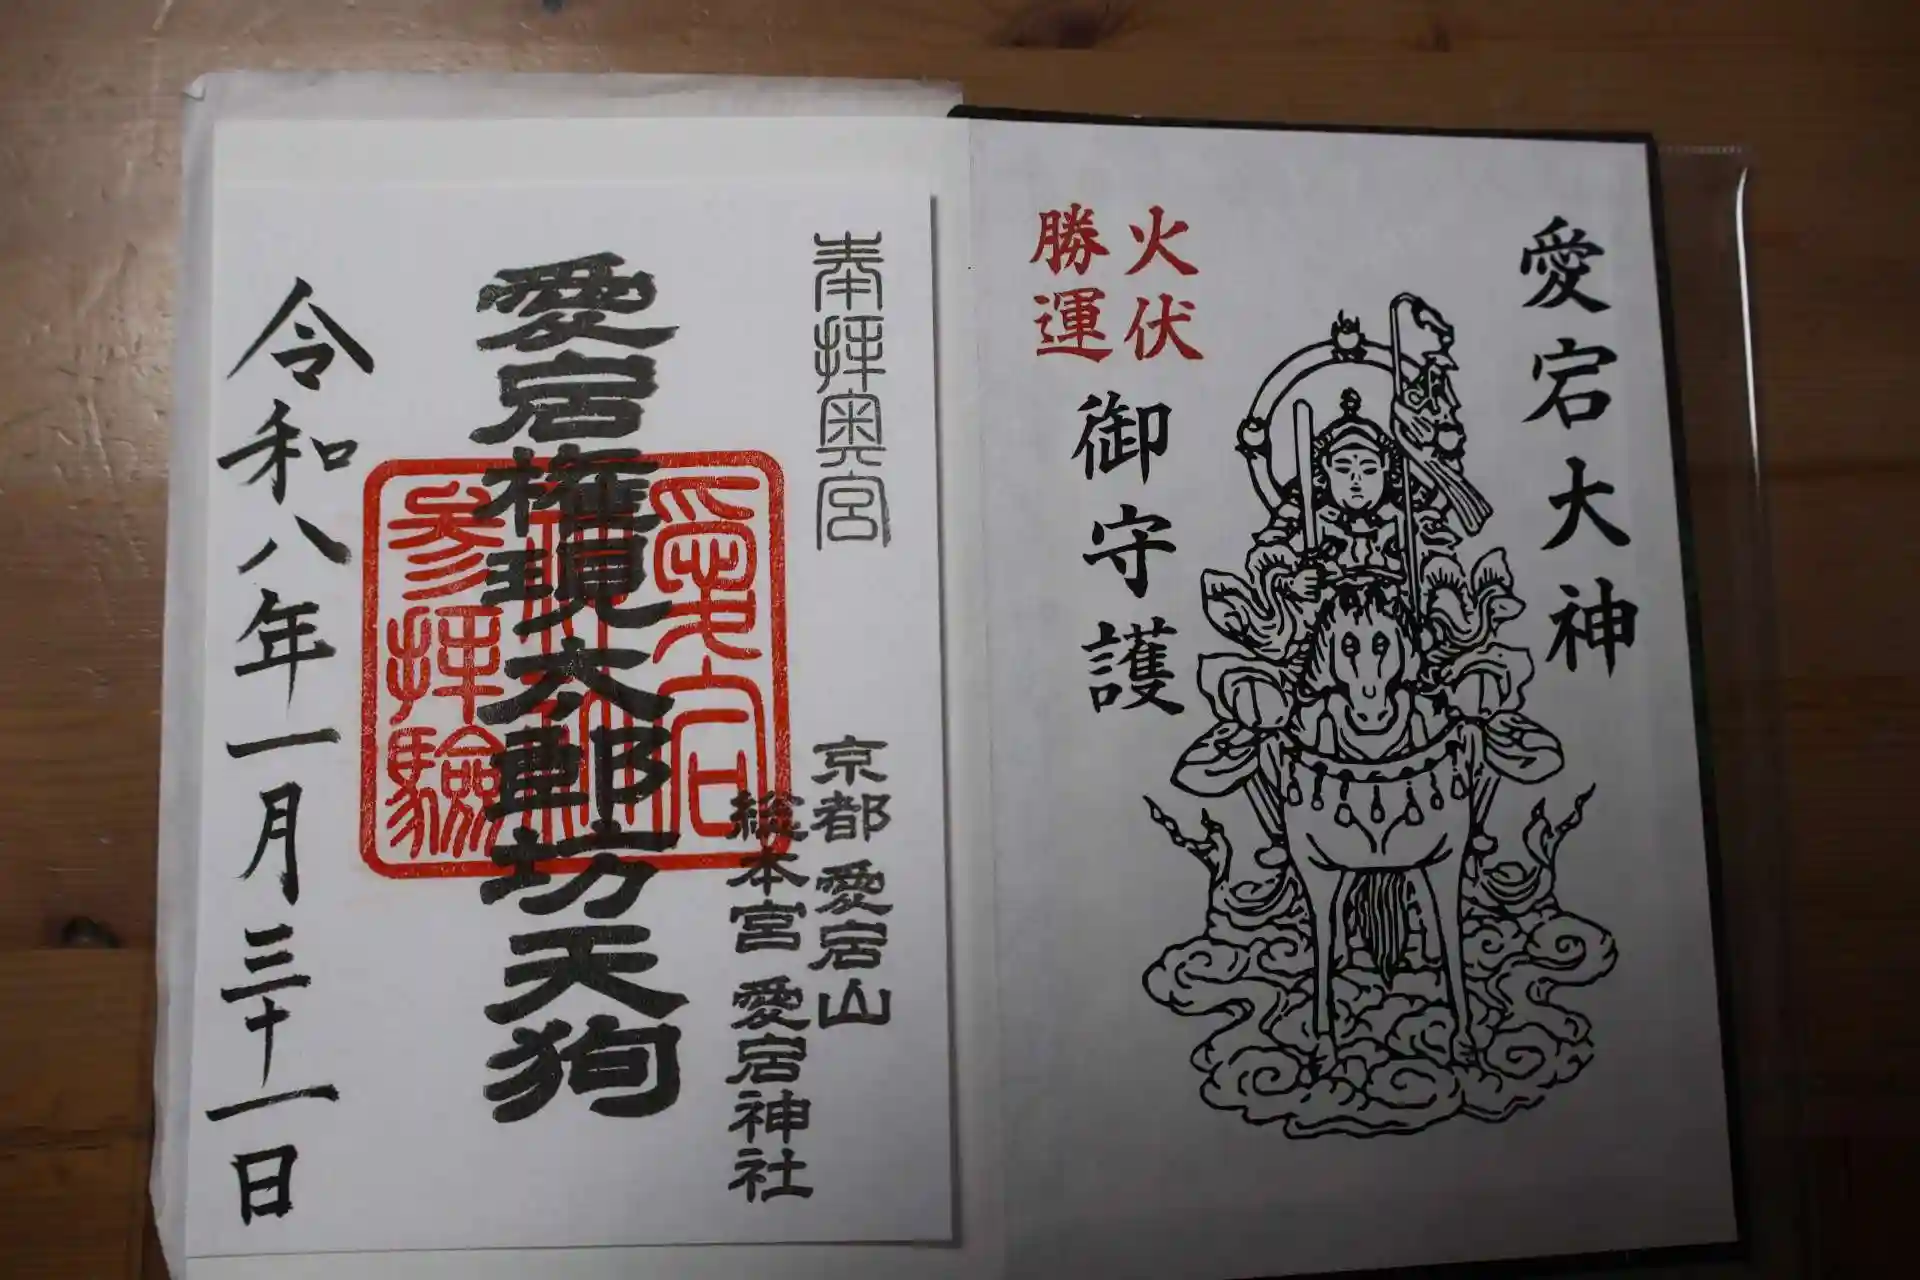 愛宕大神
火伏
勝運
御守護
奉拝奥宮
京都愛宕山
総本宮 愛宕神社
愛宕権現太郎坊天狗
愛宕
神社
参拝験
令和八年一月三十一日